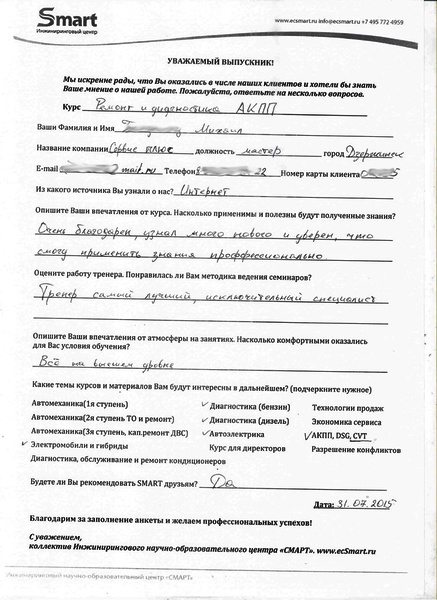 Smart
Инжиниринговый центр
www.ecsmart.ru info@ecsmart.ru +7 495 772 4959
УВАЖАЕМЫЙ ВЫПУСКНИК!
Мы искренне рады, что Вы оказались в числе наших клиентов и хотели бы знать
Ваше мнение о нашей работе. Пожалуйста, ответьте на несколько вопросов.
Курс Ремонт и диагностика АКПП
Ваши Фамилия и Имя Михаил
Название компании Сервис плюс должность мастер город Дзержинск
E-mail mail.ru Телефон 8 22 Номер карты клиента 5
Из какого источника Вы узнали о нас? Интернет
Опишите Ваши впечатления от курса. Насколько применимы и полезны будут полученные знания?
Очень благодарен, узнал много нового и уверен, что
смогу применить знания проффессионально.
Оцените работу тренера. Понравилась ли Вам методика ведения семинаров?
Тренер самый лучший, исключительный специалист
Опишите Ваши впечатления от атмосферы на занятиях. Насколько комфортными оказались
для Вас условия обучения?
Всё на высшем уровне
Какие темы курсов и материалов Вам будут интересны в дальнейшем? (подчеркните нужное)
Автомеханика(1я ступень) ✓ Диагностика (бензин) Технологии продаж
Автомеханика(2я ступень ТО и ремонт) ✓ Диагностика (дизель) Экономика сервиса
Автомеханика(3я ступень, кап.ремонт ДВС) ✓ Автоэлектрика ✓ АКПП, DSG, CVT
✓ Электромобили и гибриды Курс для директоров Разрешение конфликтов
Диагностика, обслуживание и ремонт кондиционеров
Будете ли Вы рекомендовать SMART друзьям? Да
Дата: 31.07.2015
Благодарим за заполнение анкеты и желаем профессиональных успехов!
С уважением,
коллектив Инжинирингового научно-образовательного центра «СМАРТ». www.ecSmart.ru
Инжиниринговый научно-образовательный центр «СМАРТ»